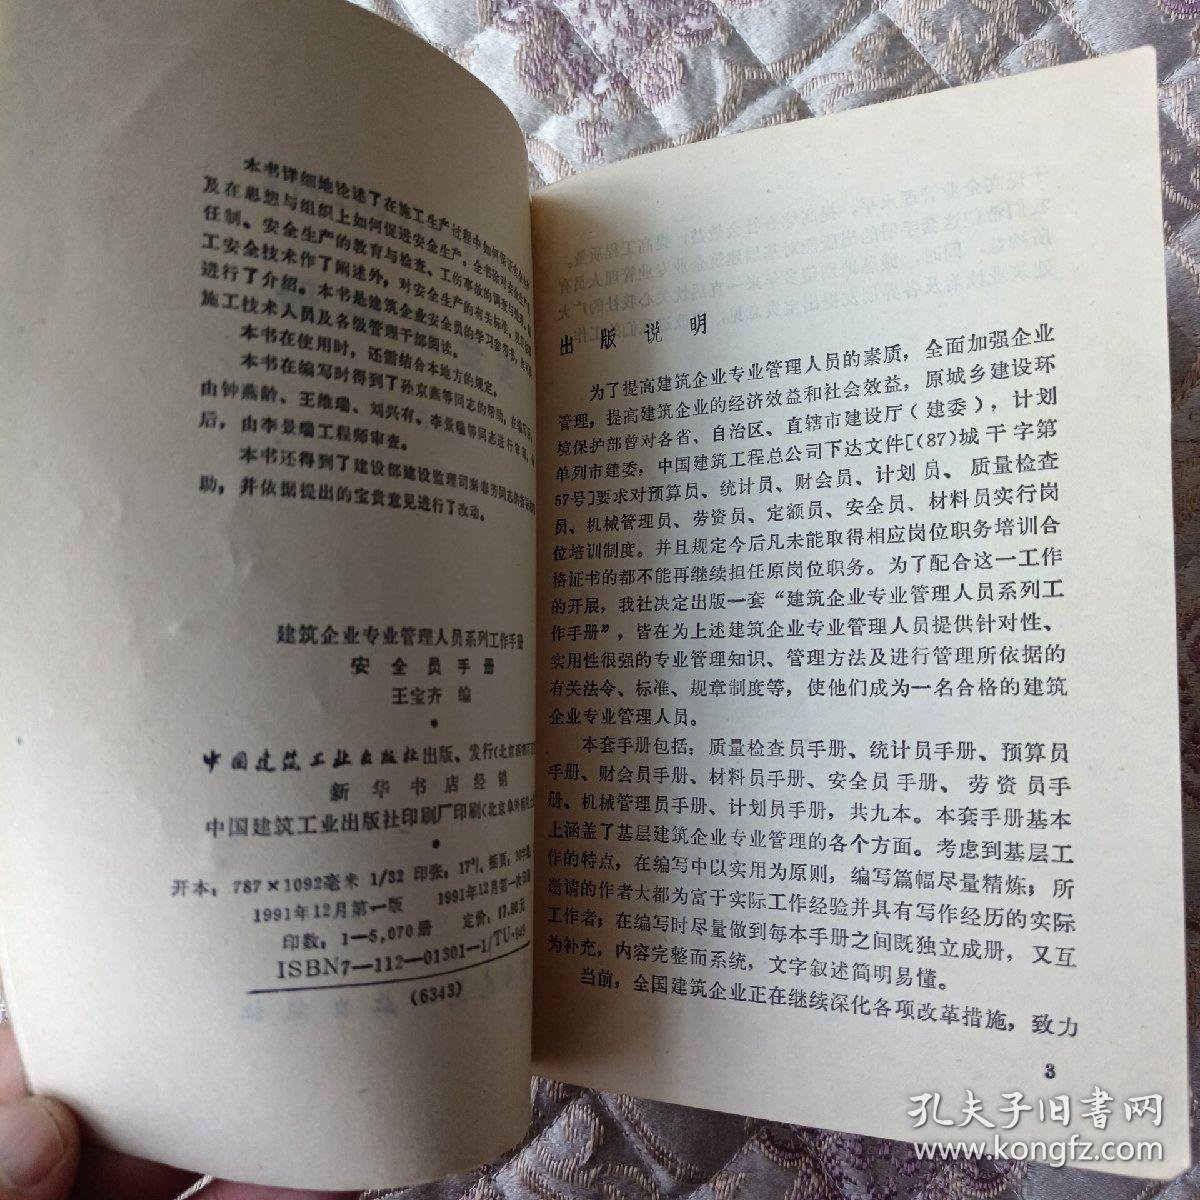 本书详细地论述了在施工生产过程中如何保证安全
及在思想与组织上如何促进安全生产。全书除对安全生产
任制、安全生产的教育与检查、工伤事故的调查与
工安全技术作了阐述外，对安全生产的有关标准、
进行了介绍。本书是建筑企业安全员的学习参考书，
施工技术人员及各级管理干部阅读。
本书在使用时，还需结合本地方的规定。
本书在编写时得到了孙京燕等同志的帮助，在编写
由钟燕龄、王维瑞、刘兴有、李景瑞等同志进行
后，由李景瑞工程师审查。
本书还得到了建设部建设监理司
助，并依据提出的宝贵意见进行了改动。
建筑企业专业管理人员系列工作手册
安全员手册
王宝齐 编
*
中国建筑工业出版社出版、发行(北京西郊
新华书店经销
中国建筑工业出版社印刷厂印刷(北京阜外
*
开本：787×1092毫米 1/32 印张：17 插页：
1991年12月第一版 1991年12月第一次印刷
印数：1—5,070册 定价：17.80元
ISBN7—112—01301—1/TU·949
(6343)
出版说明
为了提高建筑企业专业管理人员的素质，全面加强企业
管理，提高建筑企业的经济效益和社会效益，原城乡建设环
境保护部曾对各省、自治区、直辖市建设厅（建委），计划
单列市建委，中国建筑工程总公司下达文件[(87)城干字第
57号]要求对预算员、统计员、财会员、计划员、质量检查
员、机械管理员、劳资员、定额员、安全员、材料员实行岗
位培训制度。并且规定今后凡未能取得相应岗位职务培训合
格证书的都不能再继续担任原岗位职务。为了配合这一工作
的开展，我社决定出版一套“建筑企业专业管理人员系列工
作手册”，皆在为上述建筑企业专业管理人员提供针对性、
实用性很强的专业管理知识、管理方法及进行管理所依据的
有关法令、标准、规章制度等，使他们成为一名合格的建筑
企业专业管理人员。
本套手册包括：质量检查员手册、统计员手册、预算员
手册、财会员手册、材料员手册、安全员手册、劳资员手
册、机械管理员手册、计划员手册，共九本。本套手册基本
上涵盖了基层建筑企业专业管理的各个方面。考虑到基层工
作的特点，在编写中以实用为原则，编写篇幅尽量精炼；所
邀请的作者大都为富于实际工作经验并具有写作经历的实际
工作者；在编写时尽量做到每本手册之间既独立成册，又互
为补充，内容完整而系统，文字叙述简明易懂。
当前，全国建筑企业正在继续深化各项改革措施，致力
3
孔夫子旧书网
www.kongfz.com